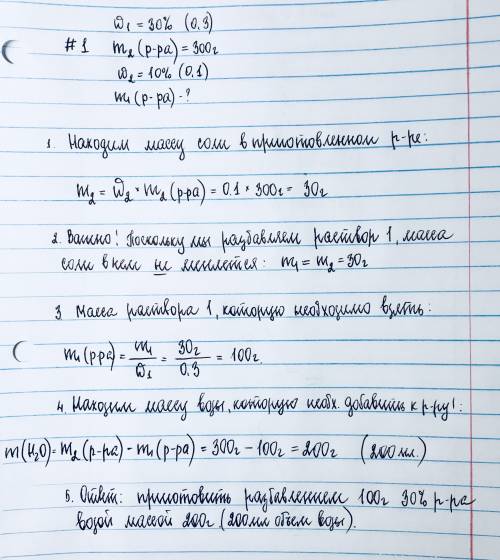 ω₁ = 30% (0,3)
#1 m₂ (р-ра) = 300г
ω₂ = 10% (0.1)
m₁ (р-ра) - ?
1. Находим массу соли в приготовленном р-ре:
m₂ = ω₂ * m₂ (р-ра) = 0.1 * 300г = 30г
2. Важно! Поскольку мы разбавляем раствор 1, масса
соли в нем не меняется: m₁ = m₂ = 30г
3. Масса раствора 1, которую необходимо взять:
m₁ (р-ра) = m₁/ω₁ = 30г/0.3 = 100г.
4. Находим массу воды, которую необх. добавить к р-ру 1:
m(H₂O) = m₂ (р-ра) - m₁ (р-ра) = 300г - 100г = 200г (200мл.)
5. Ответ: приготовить разбавлением 100г 30% р-ра
водой массой 200г (200мл объем воды).